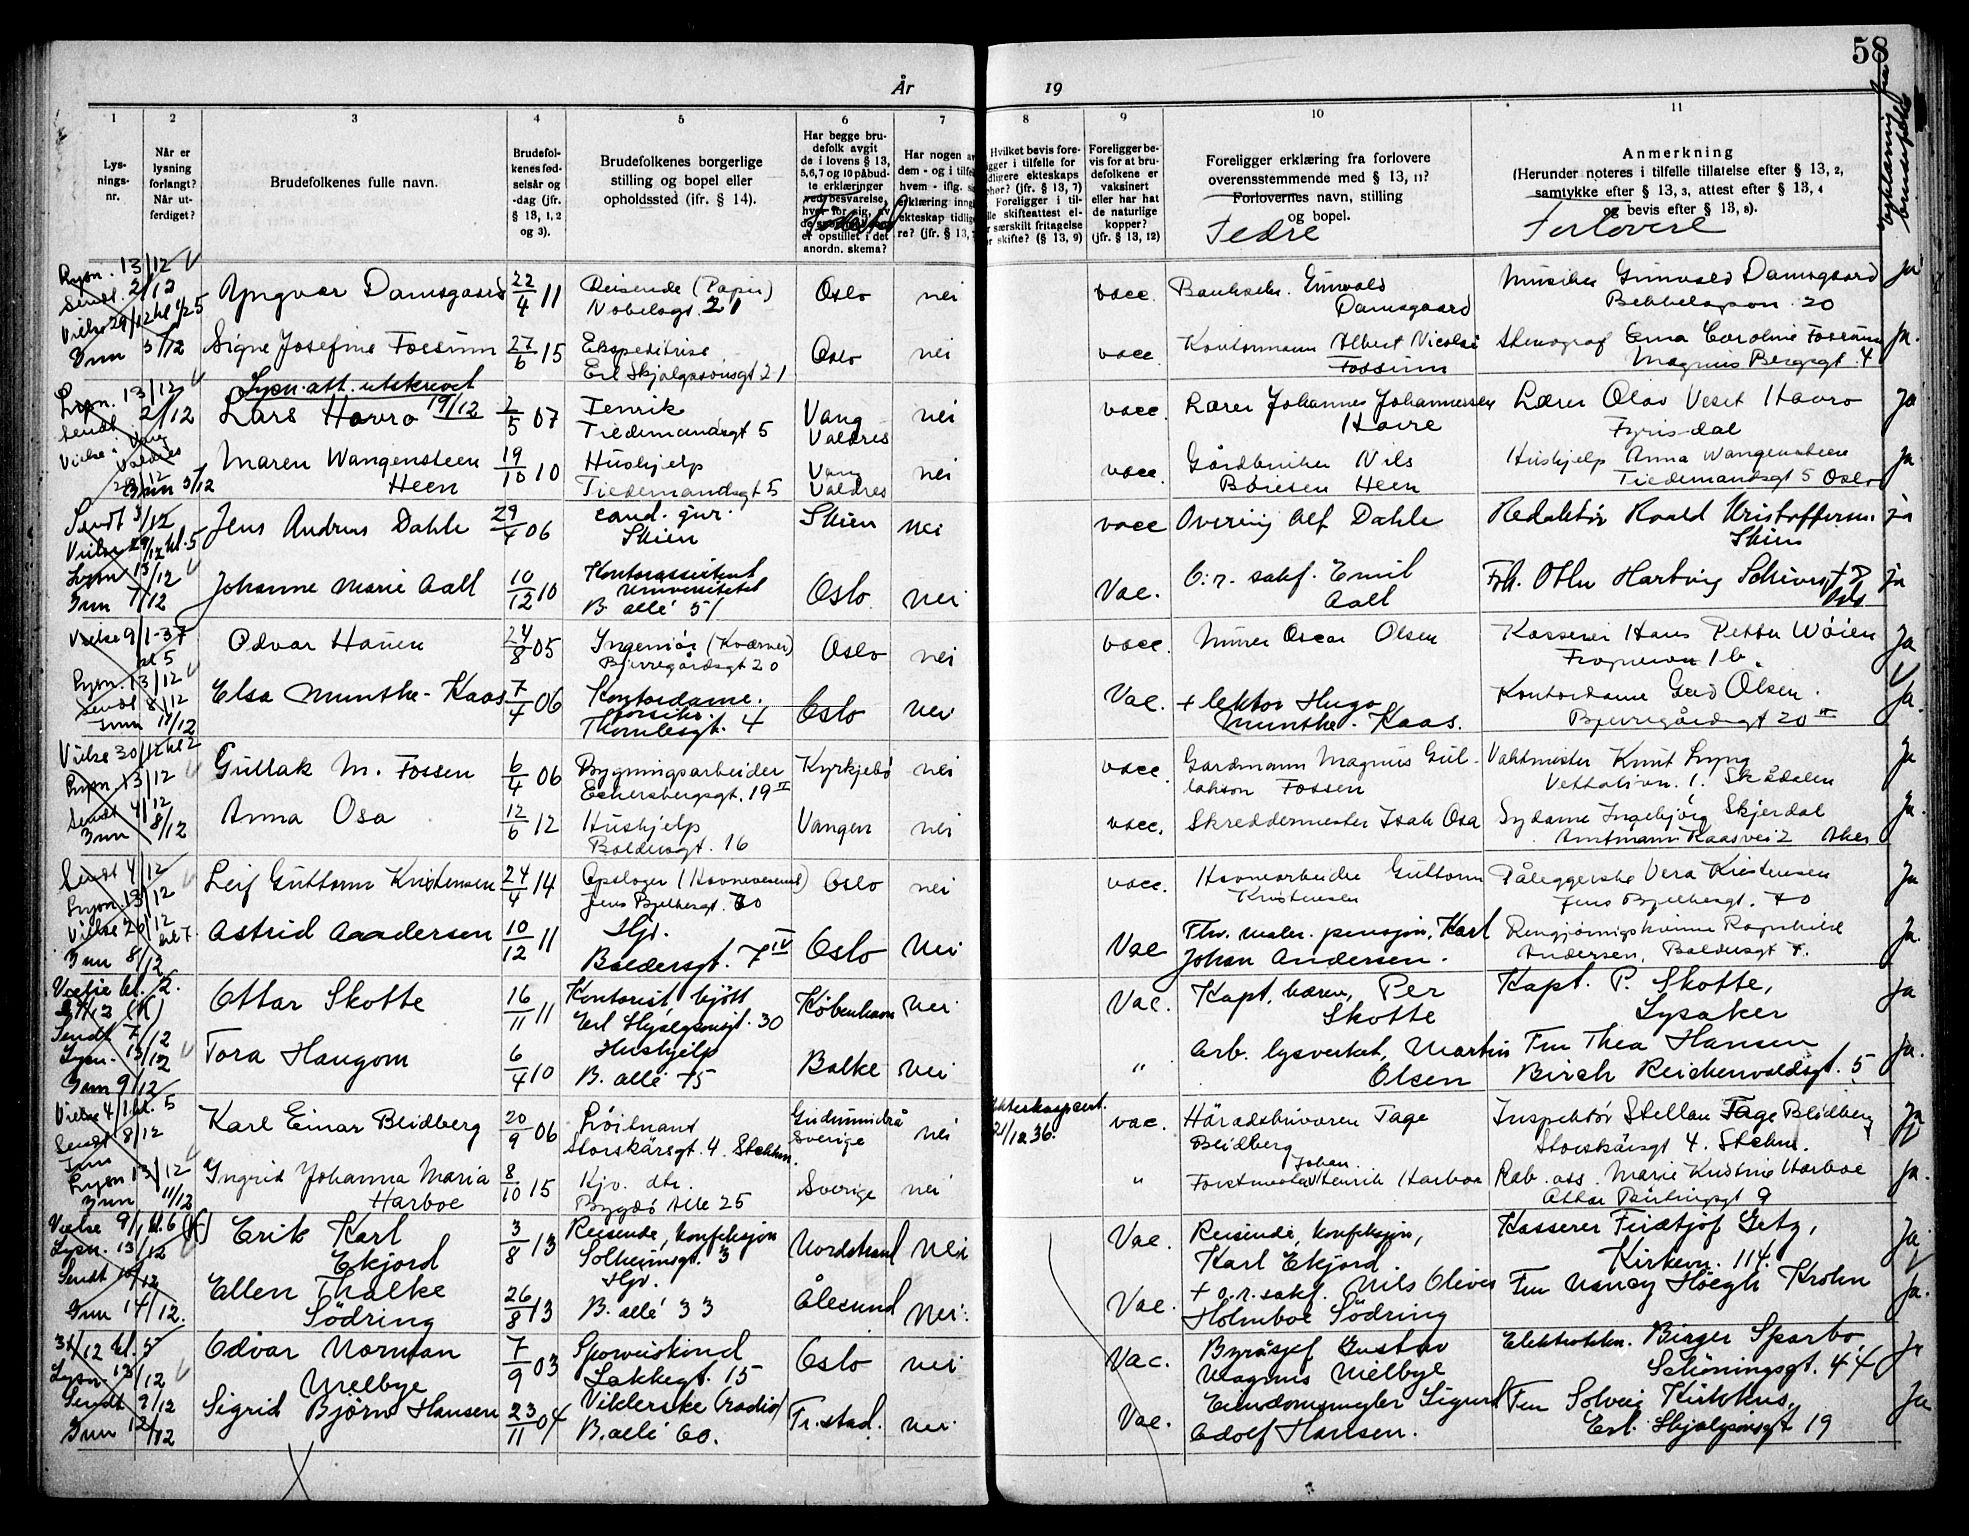 58
År
19
1
2
3
4
5
6
7
8
9
10
11
Lys-
nings-
nr.
Når er
lysning
forlangt?
Når ut-
ferdiget?
Brudefolkenes fulle navn.
Brudefol-
kenes fød-
selsår og
-dag (jfr.
§ 13, 1, 2
og 3).
Brudefolkenes borgerlige
stilling og bopel eller
opholdssted (jfr. § 14).
Har begge bru-
defolk avgit
de i lovens § 13,
5, 6, 7 og 10 påbud-
te erklæringer
ved besvarelse,
hver for sig, av
er opstillet i det
anordn. skema?
Har nogen av
dem - og i tilfelle
hvem - iflg.
erklæring inngått
ekteskap tidlige-
re? (jfr. § 13, 7)
Hvilket bevis fore-
ligger i tilfelle for
tidligere ekteskaps
ophør? (jfr. § 13, 7)
Foreligger i til-
felle skifteattest el-
ler særskilt fritagelse
for skifte? (§ 13, 9)
Foreligger be-
vis for at bru-
defolkene er
vaksinert
eller har hat
de naturlige
kopper?
(jfr. § 13, 12)
Foreligger erklæring fra forlovere
overensstemmende med § 13, 11?
Forlovernes navn, stilling
og bopel.
Fedre
Anmerkning
(Herunder noteres i tilfelle tillatelse efter § 13, 2,
samtykke efter § 13, 3, attest efter § 13, 4
og bevis efter § 13, 8).
Forlovere
Lysn. 13/12
Sendt 2/12
Vielse 29/12 kl 1/2 5
Inn 5/12
Yngvar Damsgaard 22/4 11 Reisende (Papir) Oslo nei vacc. Banksekr. Gunvald Musiker Gunvald Damsgaard ja
Nobelsgt. 21 Damsgaard Bekkelagsvn. 20
Signe Josefine Fossum 27/6 15 Ekspeditrise Oslo nei vacc. Kontormann Albert Nicolai Stenograf Erna Caroline Fossum ja.
Erl Skjalgssonsgt 21 Fossum Magnus Bergsgt. 4
Lysn. 13/12
Sendt 2/12
Vielse i Vang
Valdres
Inn 5/12
Lysn. att. utskrevet
19/12
Lars Havro 2/5 07 Fenrik Vang nei vacc. Lærer Johannes Johannessen Lærer Olav Veset Havro ja
Tiedemandsgt 5 Valdres Havre Fyrisdal
Maren Wangensteen 19/10 10 Hushjelp Vang nei vacc. Gårdbruker Nils Hushjelp Anna Wangensteen ja
Heen Tiedemandsgt 5 Valdres Bøiesen Heen Tiedemandsgt 5 Oslo
Sendt 3/12
Vielse 29/12 kl. 5
Lysn 13/12
Inn 7/12
Jens Andreas Dahle 29/4 06 cand. jur. Skien nei vacc Overing Alf Dahle Redaktør Roald Kristoffersen ja
Skien Skien
Johanne Marie Aall 10/12 10 Kontorassistent Oslo. nei Vac. O.r. sakf. Emil ja
Universitetet Aall
B. allé 51
Vielse 9/1-37
kl 5
Lysn. 13/12
Sendt 8/12
Inn 14/12
Odvar Hauen 24/8 05 Ingeniør (Kværner) Oslo nei vacc. Murer Oscar Olsen Kasserer Hans Petter Wøien ja
Bjerregårdsgt 20 Frognervn 1b.
Elsa Munthe-Kaas 7/4 06 Kontordame. Oslo nei Vac. + lektor Hugo Kontordame Gerd Olsen. ja.
forsikr. Munthe-Kaas. Bjerregårdsgt 20 II
Thomlesgt. 4
Vielse 30/12 kl 2
Lysn. 13/12
Sendt 4/12
Inn 8/12
Gullak M. Fossen 6/4 06 Bygningsarbeider Kyrkjebø nei vacc. Gardmann Magnus Gul- Vaktmester Knut Lyng ja
Eckersbergsgt. 19 II lakson Fossen Vettalivn. 1. Skådalen
Anna Osa 12/6 12 Hushjelp Vangen nei vacc. Skreddermester Isak Osa Sydame Ingebjørg Skjerdal ja.
Baldersgt. 16 Amtmann Kaasvei 2 Aker
Sendt 4/12
Lysn. 13/12
Vielse 26/12
kl 7.
Inn 8/12
Leif Guttorm Kristensen 24/4 14 Opslager (Havnevesenet) Oslo nei vacc. Havnearbeider Guttorm Påleggerske Vera Kristensen ja
Jens Bjelkesgt. 70 Kristensen Jens Bjelkesgt. 70
Astrid Aandersen 10/12 11 Hj. Oslo Nei Vac Fhv. maler. pensjon, Karl Rengjøringskvinne Ragnhild ja.
Baldersgt. 7 IV Johan Andersen. Andersen, Baldersgt 7.
Vielse kl. 2.
(K)
Sendt 7/12
Lysn. 13/12
Inn 9/12
Ottar Skotte 16/11 11 Kontorist kjøtt København nei Vac. Kapt. hæren, Per Kapt. P. Skotte, ja
Erl Skjalgsonsgt. 30 Skotte Lysaker
Tora Haugom 6/4 10 Hushjelp Balke nei " Arb. lysverket, Martin Fru Thea Hansen ja.
B. allé 75 Olsen Birch Reichenwaldsgt. 5
Vielse 4/1 kl. 5
Sendt 8/12
Lysn 13/12
Inn 11/12
Karl Einar Beidberg 20/9 06 Løitnant Gudmundrå nei Ekteskapsert. vac. Häradskrivaren Tage Inspektør Stellan Tage Beidberg ja
Storskärsgt. 4. Stckhm. Sverige 21/12 36. Beidberg Storskärsgt 4. Stckhm.
Ingrid Johanna Maria 8/10 15 Kjv. dtr. Sverige nei " Forstmester Johan Henrik Harboe Rab. ass. Marie Kristine Harboe ja.
Harboe Bygdø Alle 25
Vielse 9/1 kl. 6 (K)
Lysn. 13/12
Sendt 10/12
Inn 14/12.
Erik Karl 3/8 13 Reisende, konfeksjon Nordstrand Nei Vac. Reisende, konfeksjon, Kasserer Fridtjof Getz, ja
Ekjord Solheimsgt. 3 Karl Ekjord. Kirkevn. 114.
Ellen Thalke 26/8 13 Hj. Ålesund Nei. Vac. + o.r. sakf. Nils Oliver Fru Nancy Høegh Krohn ja.
Södring B. allé 33 Holmboe Södring
31/12 kl. 5
Lysn. 13/12
Sendt 9/12
Inn 12/12
Odvar Norman 7/9 03 Oslo nei Vac. Byråsjef Gustav Elektrotekn. Birger Sparbo ja
Melbye Lakkegt. 15 Magnus Melbye Schöningsgt. 44
Sigrid Björn Hansen 23/11 04 Viklerske (radio) Fr.stad. nei Vac. Eiendomsmegler Sigurd Fru Solveig ja
B. allé 60. Adolf Hansen. Erl. Skjalgsonsgt 19